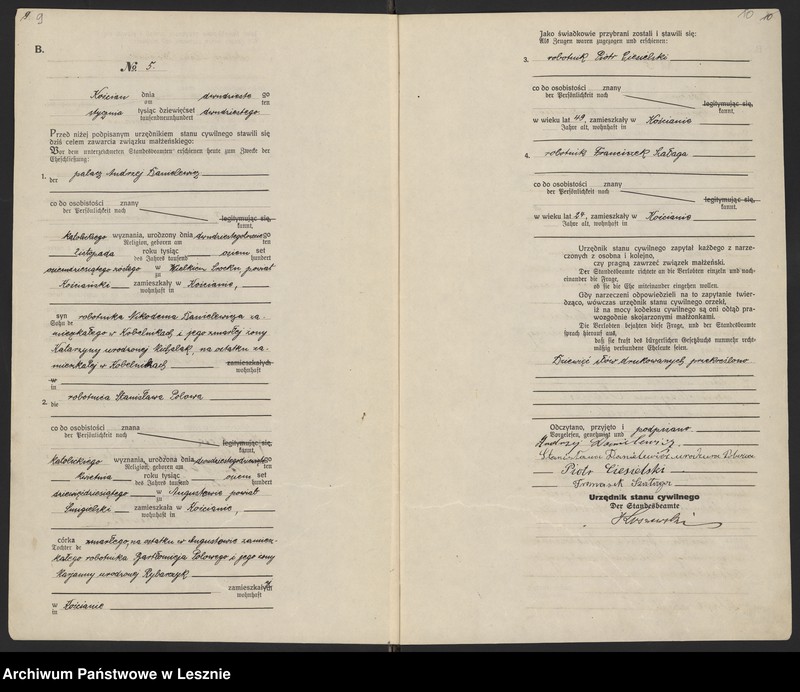 9
B.
No. 5.
Kościan dnia dwudziestego
am ten
stycznia tysiąc dziewięćset dwudziestego
tausendneunhundert
Przed niżej podpisanym urzędnikiem stanu cywilnego stawili się
dziś celem zawarcia związku małżeńskiego:
Vor dem unterzeichneten Standesbeamten erschienen heute zum Zwecke der
Eheschließung:
1. palacz Andrzej Danielewicz
der
co do osobistości znany
der Persönlichkeit nach
legitymując się,
kannt,
katolickiego wyznania, urodzony dnia
Religion, geboren am ten
listopada roku tysiąc osiem set
des Jahres tausend hundert
osiemdziesiątego szóstego w Wielkim Łęcku, powiat
zu
Kościański zamieszkały w Kościanie,
wohnhaft in
syn robotnika Nikodema Danielewicza za-
Sohn de
mieszkałego w Kobelnikach, i jego zmarłej żony
Katarzyny urodzonej Michalak, na ostatku za-
mieszkałej w Kobelnikach zamieszkałych
wohnhaft
w
in
2. robotnica Stanisława Polowa
die
co do osobistości znana
der Persönlichkeit nach
legitymując się,
kannt,
katolickiego wyznania, urodzona dnia
Religion, geboren am ten
kwietnia roku tysiąc osiem set
des Jahres tausend hundert
dziewięćdziesiątego w Augustowie powiat
zu
zamieszkała w Kościanie,
wohnhaft in
córka zmarłego, na ostatku w Augustowie zamiesz-
Tochter de
kałego robotnika Bartłomieja Polowego i jego żony
Maryanny urodzonej Rybarczyk
zamieszkałej
wohnhaft
w Kościanie
in
10 10
Jako świadkowie przybrani zostali i stawili się:
Als Zeugen waren zugezogen und erschienen:
3. robotnik Piotr Ciesielski
co do osobistości znany
der Persönlichkeit nach
legitymując się,
kannt,
w wieku lat 49, zamieszkały w Kościanie
Jahre alt, wohnhaft in
4. robotnik Franciszek Szałaga
co do osobistości znany
der Persönlichkeit nach
legitymując się,
kannt,
w wieku lat 29, zamieszkały w Kościanie
Jahre alt, wohnhaft in
Urzędnik stanu cywilnego zapytał każdego z narze-
czonych z osobna i kolejno,
czy pragną zawrzeć związek małżeński.
Der Standesbeamte richtete an die Verlobten einzeln und nach-
einander die Frage,
ob sie die Ehe miteinander eingehen wollen.
Gdy narzeczeni odpowiedzieli na to zapytanie twier-
dząco, wówczas urzędnik stanu cywilnego orzekł,
iż na mocy kodeksu cywilnego są oni obtąd pra-
wozgodnie skojarzonymi małżonkami.
Die Verlobten bejahten diese Frage, und der Standesbeamte
sprach hierauf aus,
daß sie kraft des bürgerlichen Gesetzbuchs nunmehr recht-
mäßig verbundene Eheleute seien.
Dziewięć słów drukowanych przekreślono
Odczytano, przyjęto i podpisano.
Vorgelesen, genehmigt und
Andrzej Danilewicz,
Stanisława Danilewicz urodzona Polowa
Piotr Ciesielski
Szałaga
Urzędnik stanu cywilnego
Der Standesbeamte
Archiwum Państwowe w Lesznie